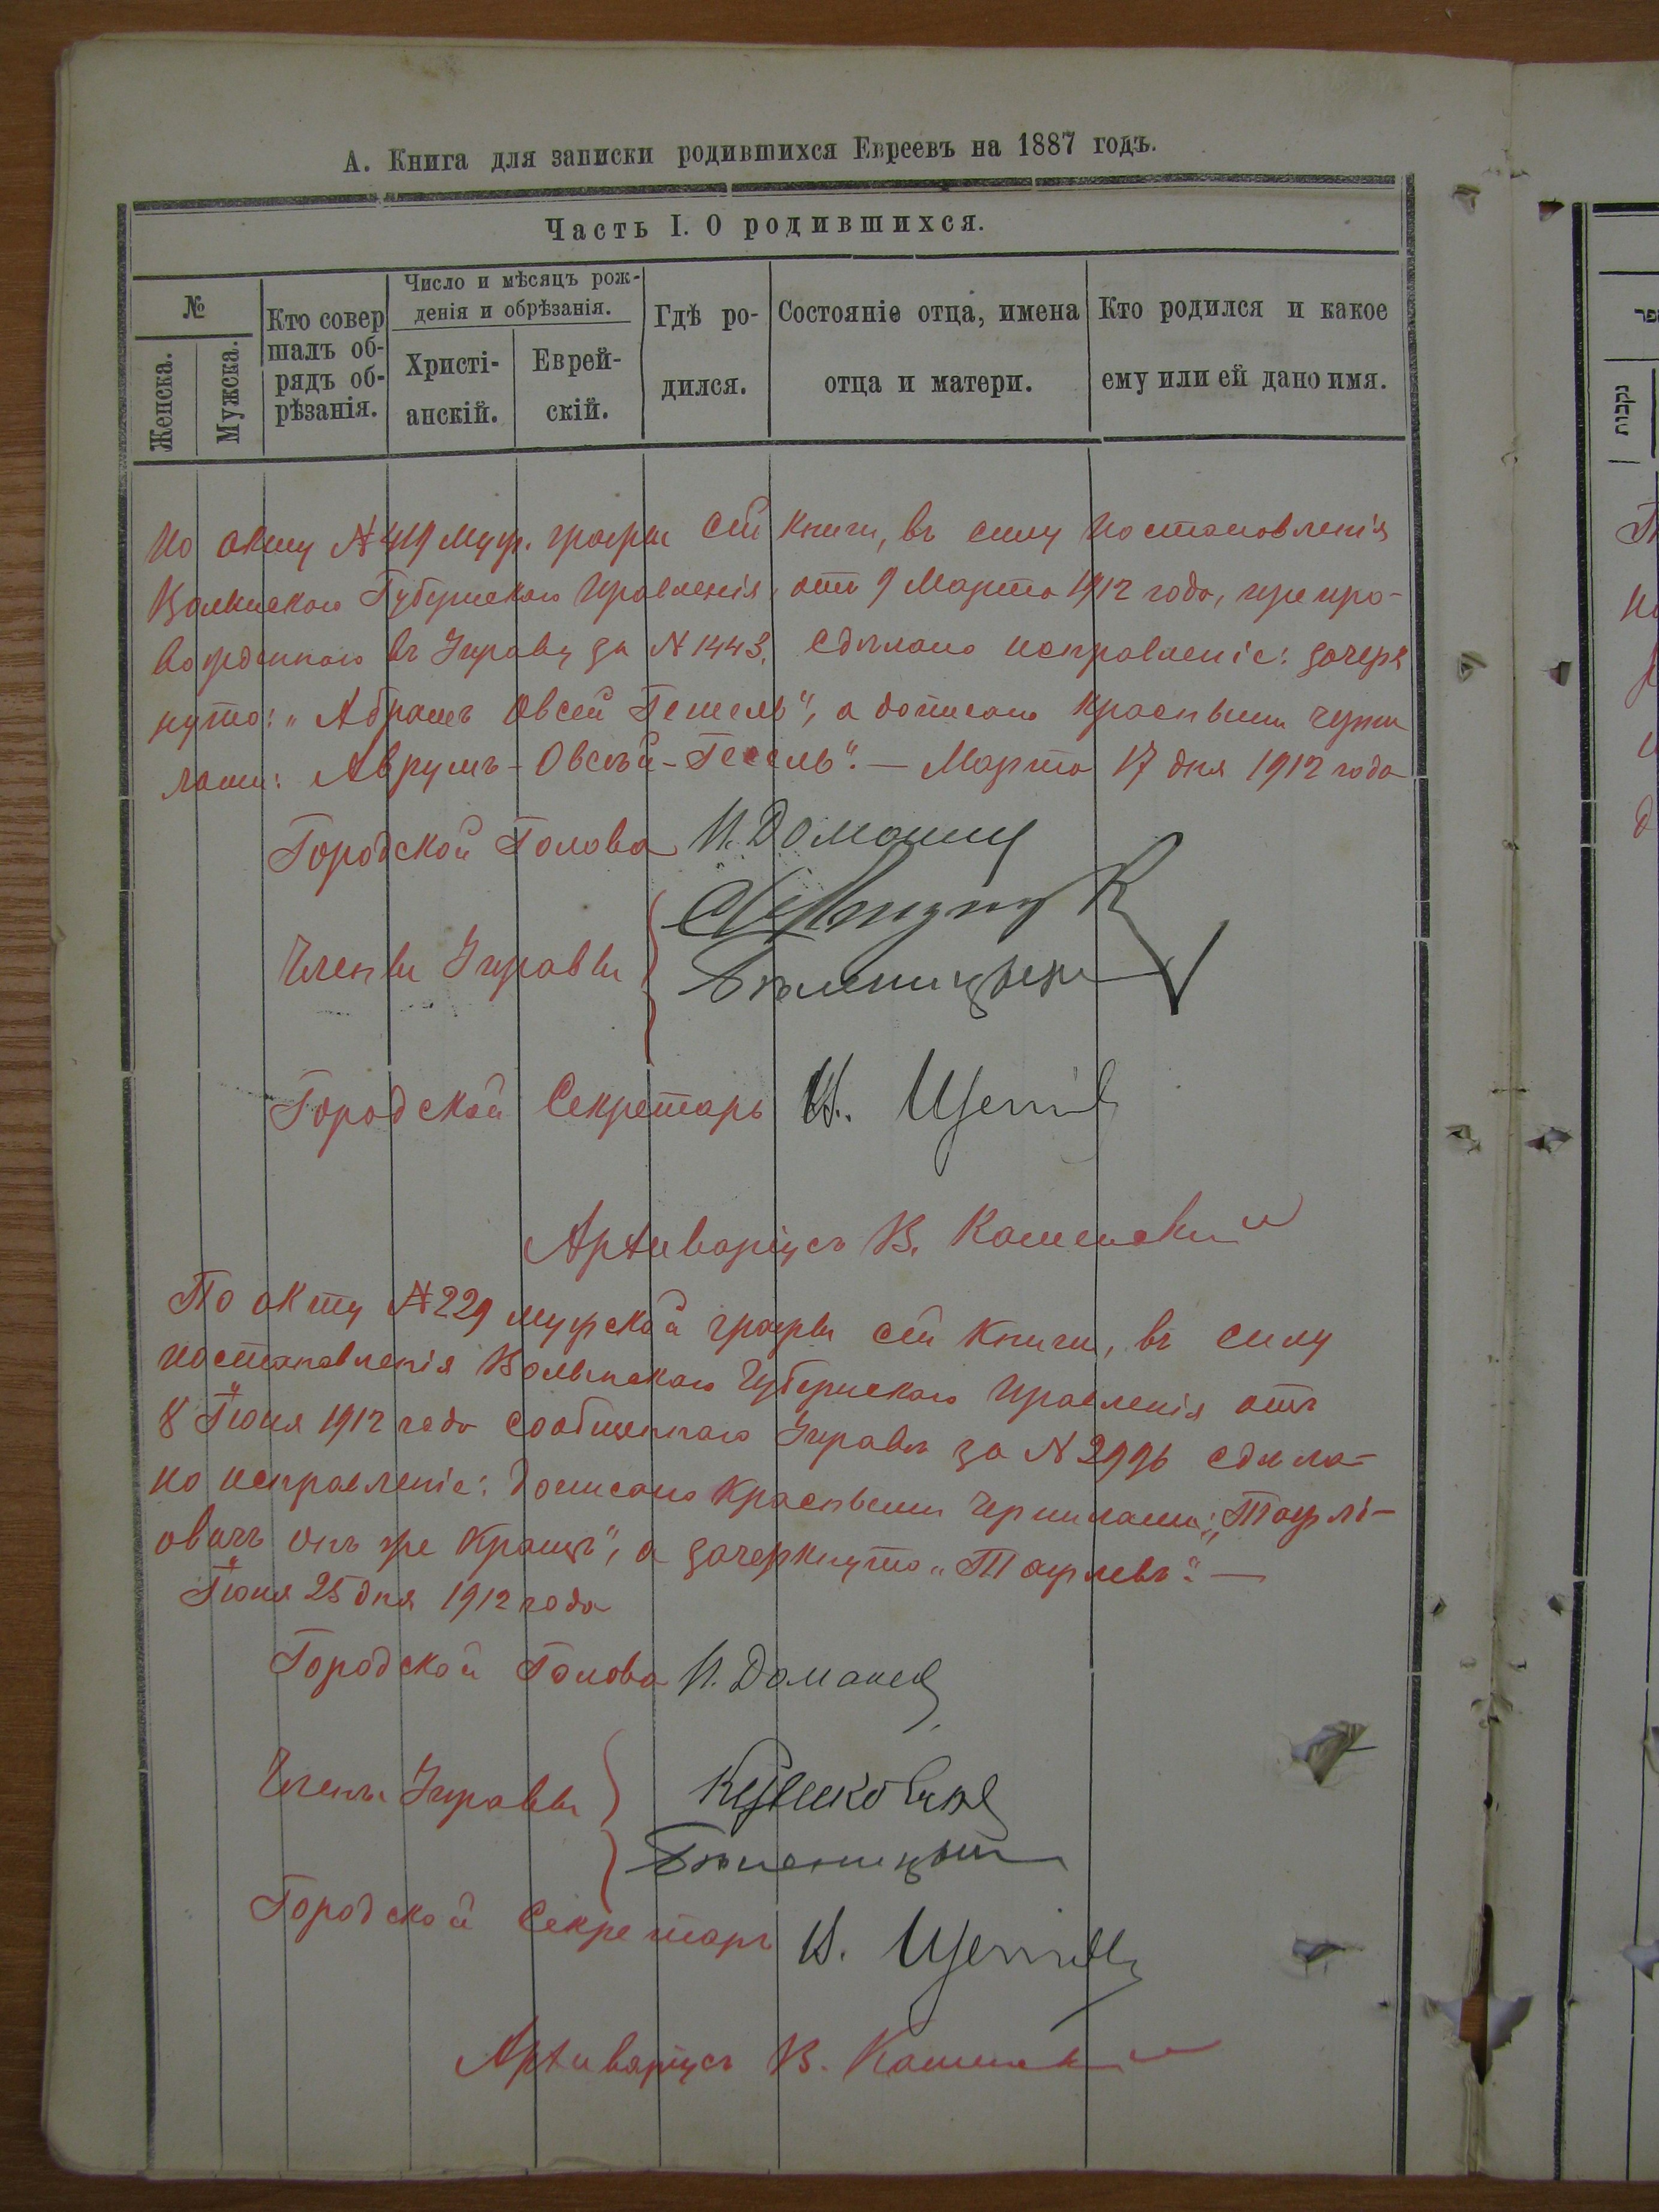 А. Книга для записки родившихся Евреевъ на 1887 годъ.
Часть I. О родившихся.
№
Женска.
Мужска.
Кто совер
шалъ об-
рядъ об-
рѣзанія.
Число и мѣсяцъ рож-
денія и обрѣзанія.
Христі-
анскій.
Еврей-
скій.
Гдѣ ро-
дился.
Состояніе отца, имена
отца и матери.
Кто родился и какое
ему или ей дано имя.
По акту №419 муж. графы сей книги, въ силу постановленія
Волынскаго Губернскаго Правленія, отъ 9 Марта 1912 года, препро-
вожденнаго въ Управу за №1443, сдѣлано исправленіе: зачерк
нуто: „Абрамъ Овсей Гешель“, а дописано красными черни
лами: Аврумъ-Овсѣй-Гесель“. — Марта 17 дня 1912 года
Городской Голова И. Доманец
Члены Управы
Городской Секретарь
Архиваріусъ В.
По акту №229 мужской графы сей книги, въ силу
постановленія Волынскаго Губернскаго Правленія отъ
8 Іюня 1912 года сообщеннаго Управѣ за №2996 сдѣла-
но исправленіе: дописано красными чернилами: „Таflі-
овичъ онъ же Кранцъ“, а зачеркнуто
Іюня 25 дня 1912 года
Городской Голова И. Доманец
Члены Управы
Городской Секретарь
Архиваріусъ В.
נקבות